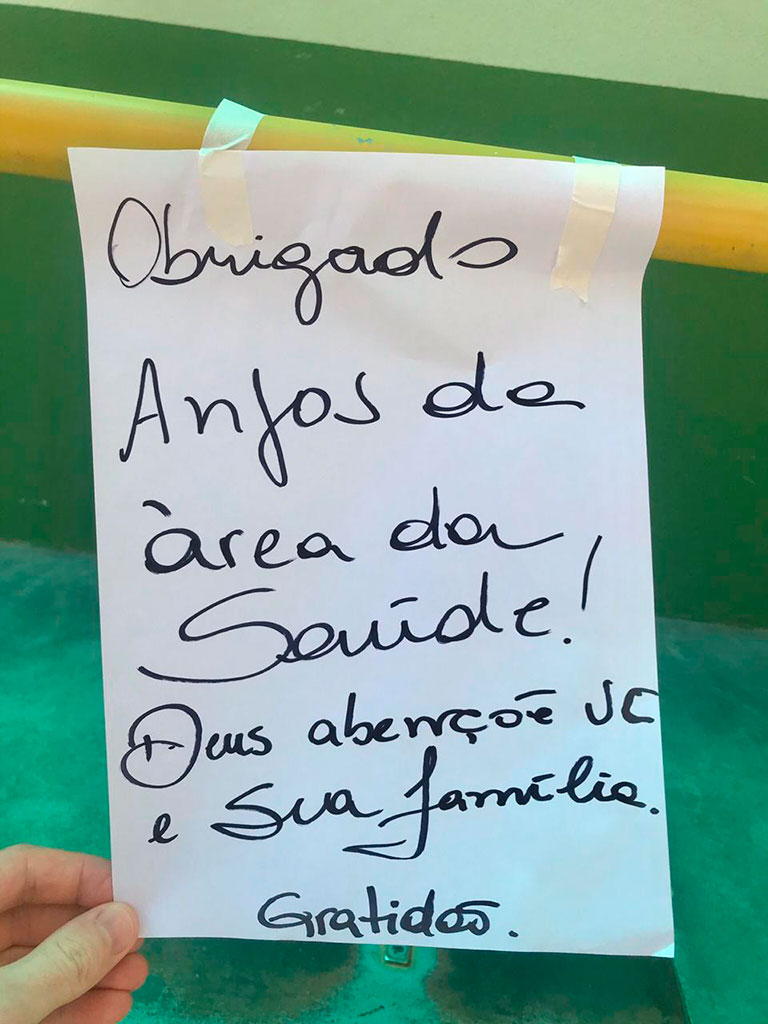 Obrigado
Anjos da
àrea da
Saúde!
Deus abençõe VC
e sua família.
Gratidão.